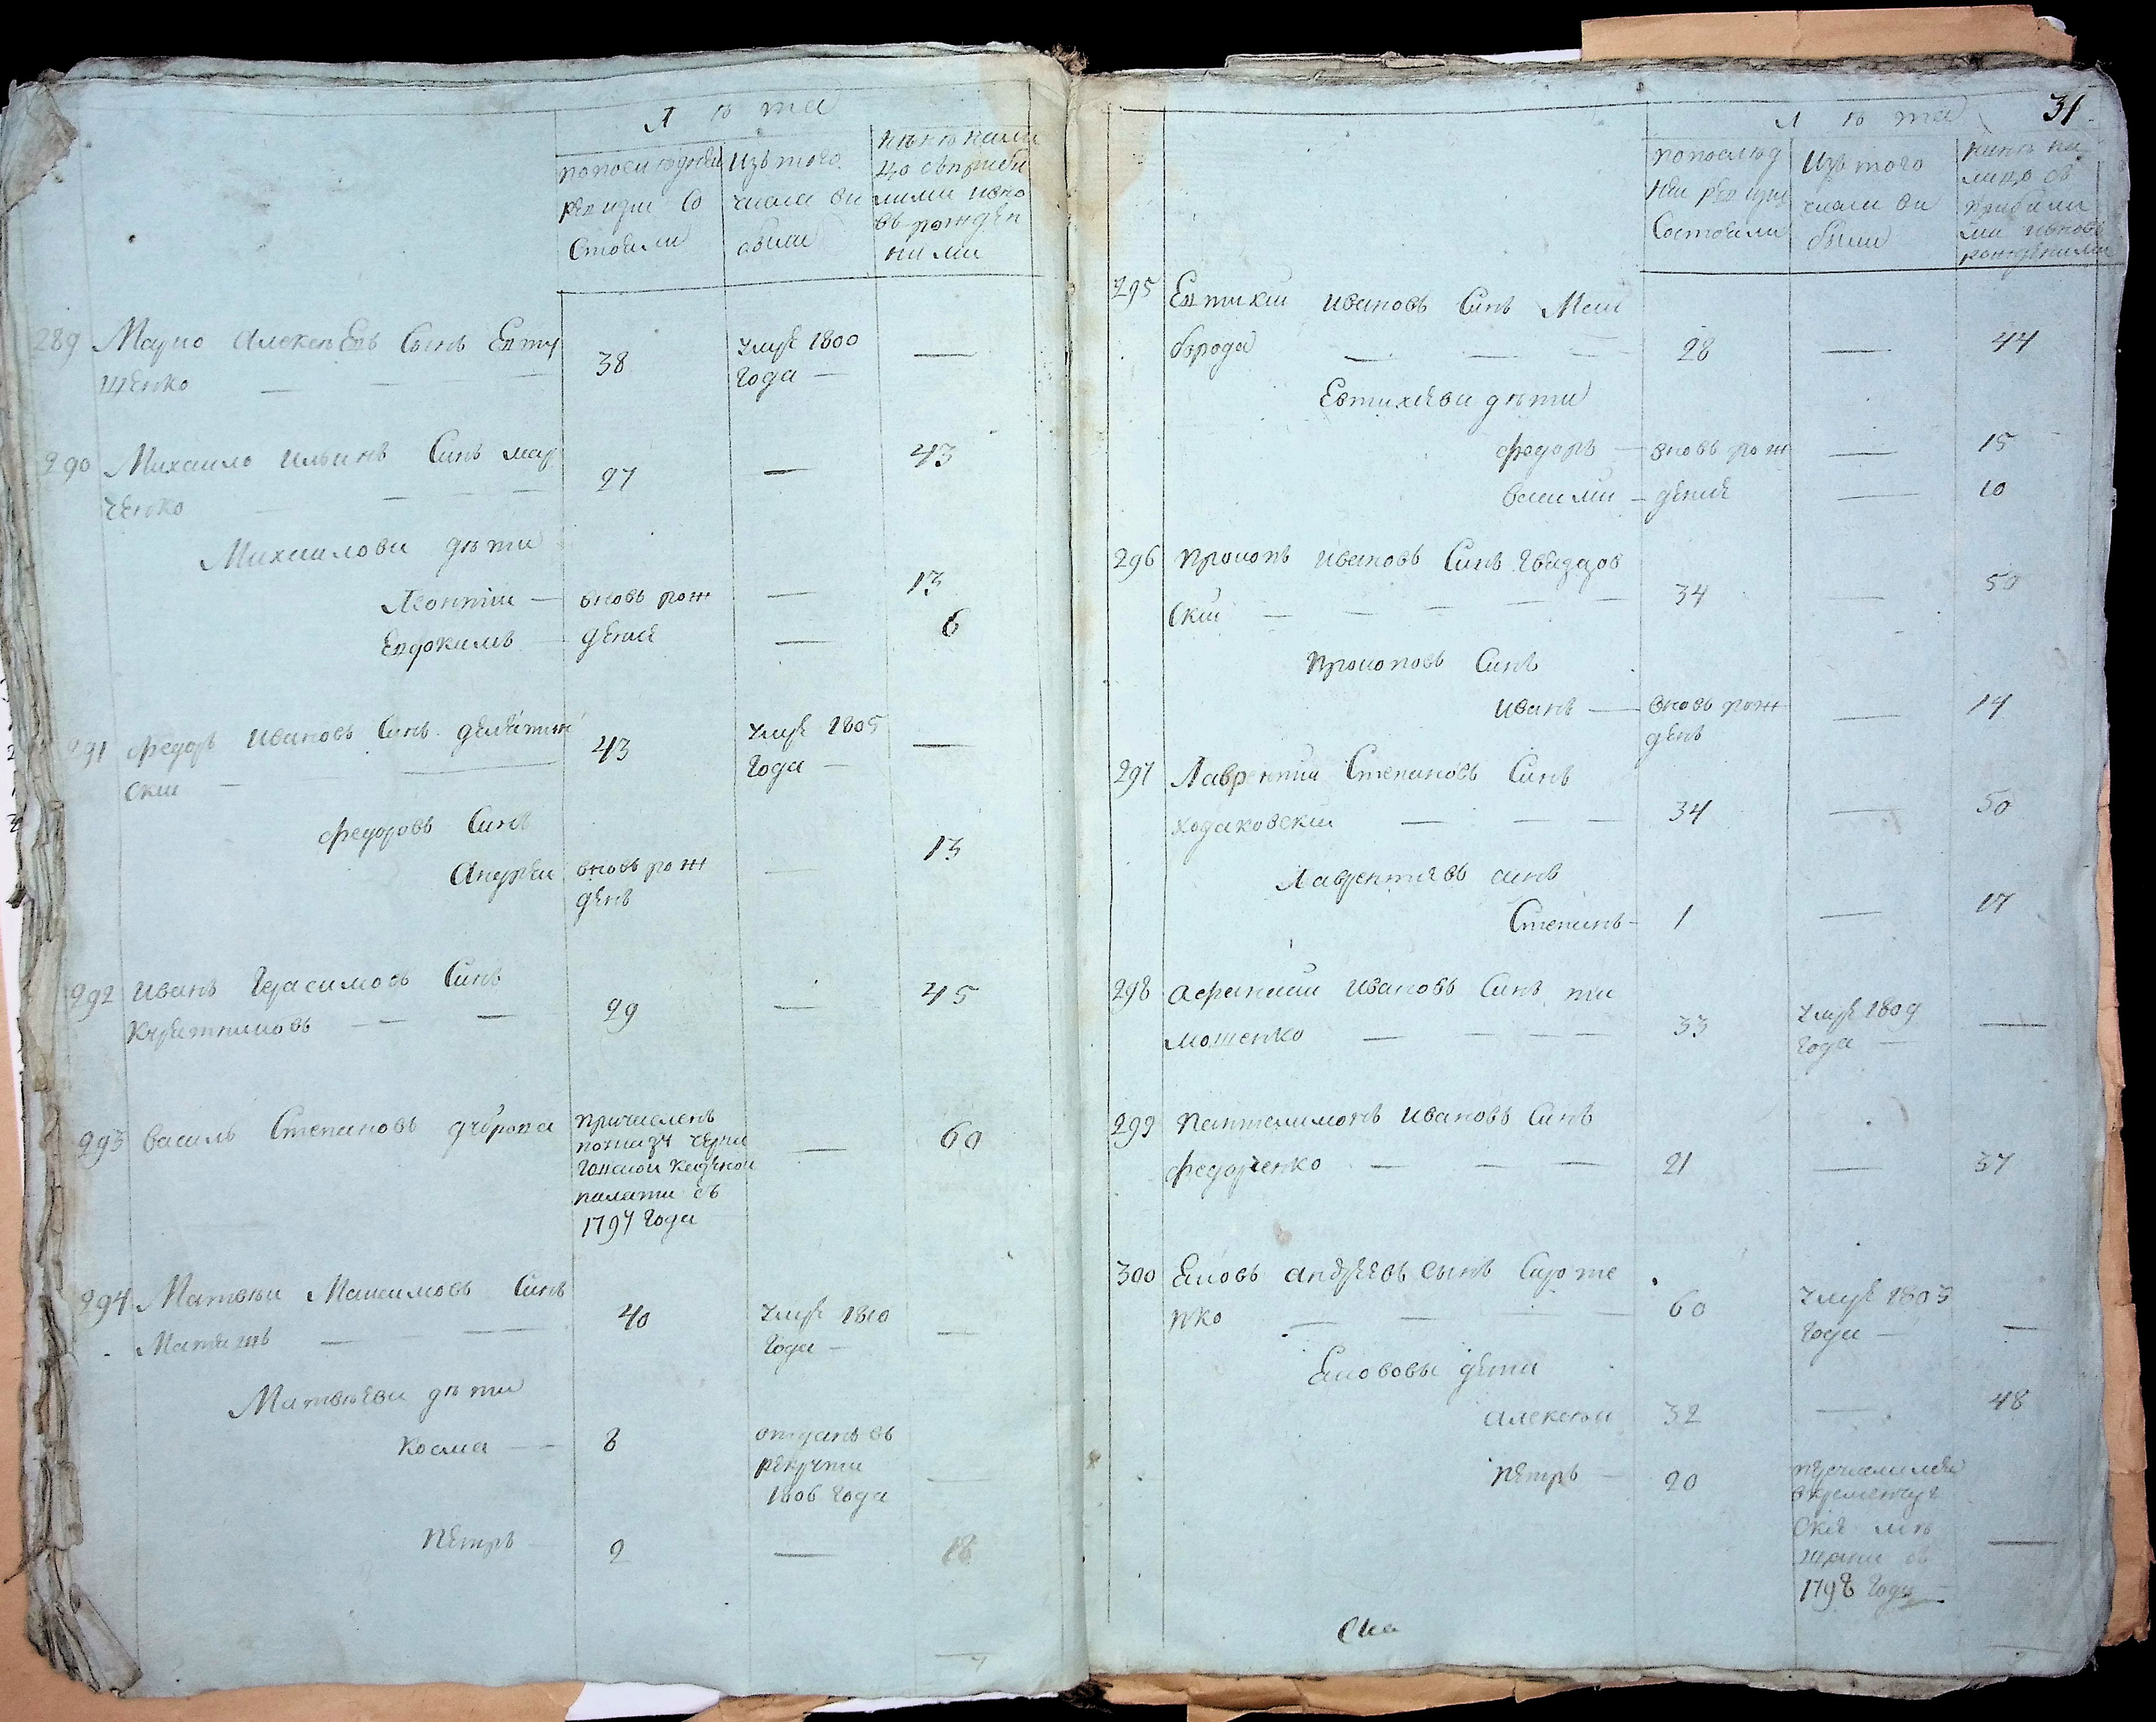 Лѣта
попоследней
ревизіи со
стояли
изъ того
числа ви
били
нынѣ нали
цо съприби
лими ивно
въ рожден
ними
289 Марко Алексѣевъ Сынъ Евту
шенко — — — 38 Умре 1800 —
Года —
290 Михаило Ильинъ Синъ мар
ченко — — — 27 — 43
Михаилови дѣти
Леонтій — вновь рож — 13
Евдокимъ — дение — 6
291 Федоръ Ивановъ Синъ
ский — 43 Умре 1805 —
Года —
Федоровъ Синъ
Андрей вновь рож — 13
денъ
292 Иванъ Герасимовъ Синъ
— — 29 — 45
293 Василь Степановъ
Причисленъ
по указу Черни
говской Казенной
палати съ
1797 Года
— 60
294 Матвѣй Максимовъ Синъ
— — 40 Умре 1810 —
Года —
Матвѣеви дѣти
Косма — 8 отданъ въ
рекрути —
1806 Года
Петръ — 2 — 18
Лѣта 31
попослѣд
ней ревизіи
Состояли
Изъ того
числа ви
били
нинѣ на
лицо съ
прибили
ми ивновь
рожденими
295 Евтихій Ивановъ Синъ Мели
борода — — — 28 — 44
Евтихиеви дѣти
Федоръ — вновь рож — 15
Василий — дение — 10
296 Прокопъ Ивановъ Синъ Гвиздов
ский — — — — 34 — 50
Прокоповъ Синъ
Иванъ — вновь рож — 14
денъ
297 Лаврентий Степановъ Синъ
Ходаковский — — — 34 — 50
Лаврентиевъ синъ
Степанъ — 1 — 17
298 Афанасий Ивановъ Синъ ти
мошенко — — — 33 Умре 1809 —
Года —
299 Пантелимонъ Ивановъ Синъ
Федоренко — — — 21 — 37
300 Ековъ Андреевъ Сынъ
нко — — — 60 Умре 1803 —
Года —
Ековови дети
Алексѣй 32 — 48
Петръ — 20 перечислився
вкременчуг
ские мѣ —
щани съ
1798 Года —
Ска